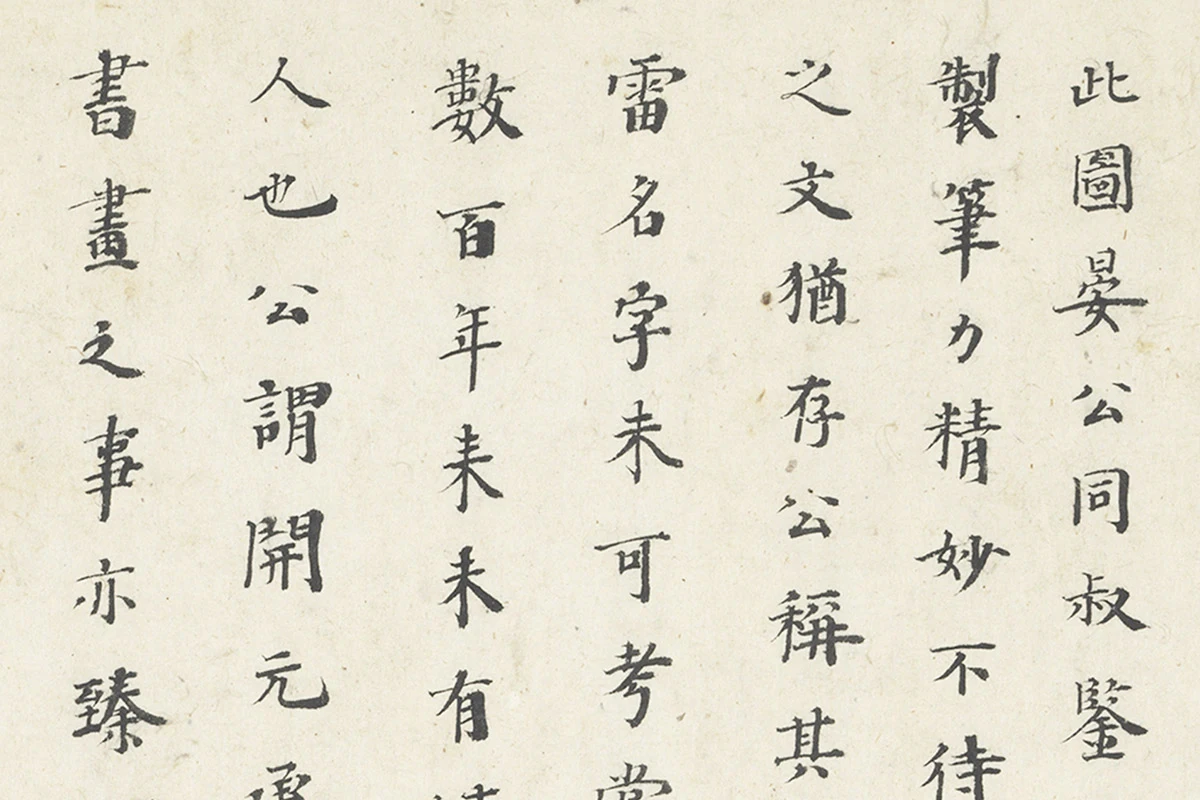 此圖晏公同叔鑒
製筆力精妙不待
之文猶存公稱其
雷名字未可考當
數百年来未有
人也公謂開元
書畫之事亦臻